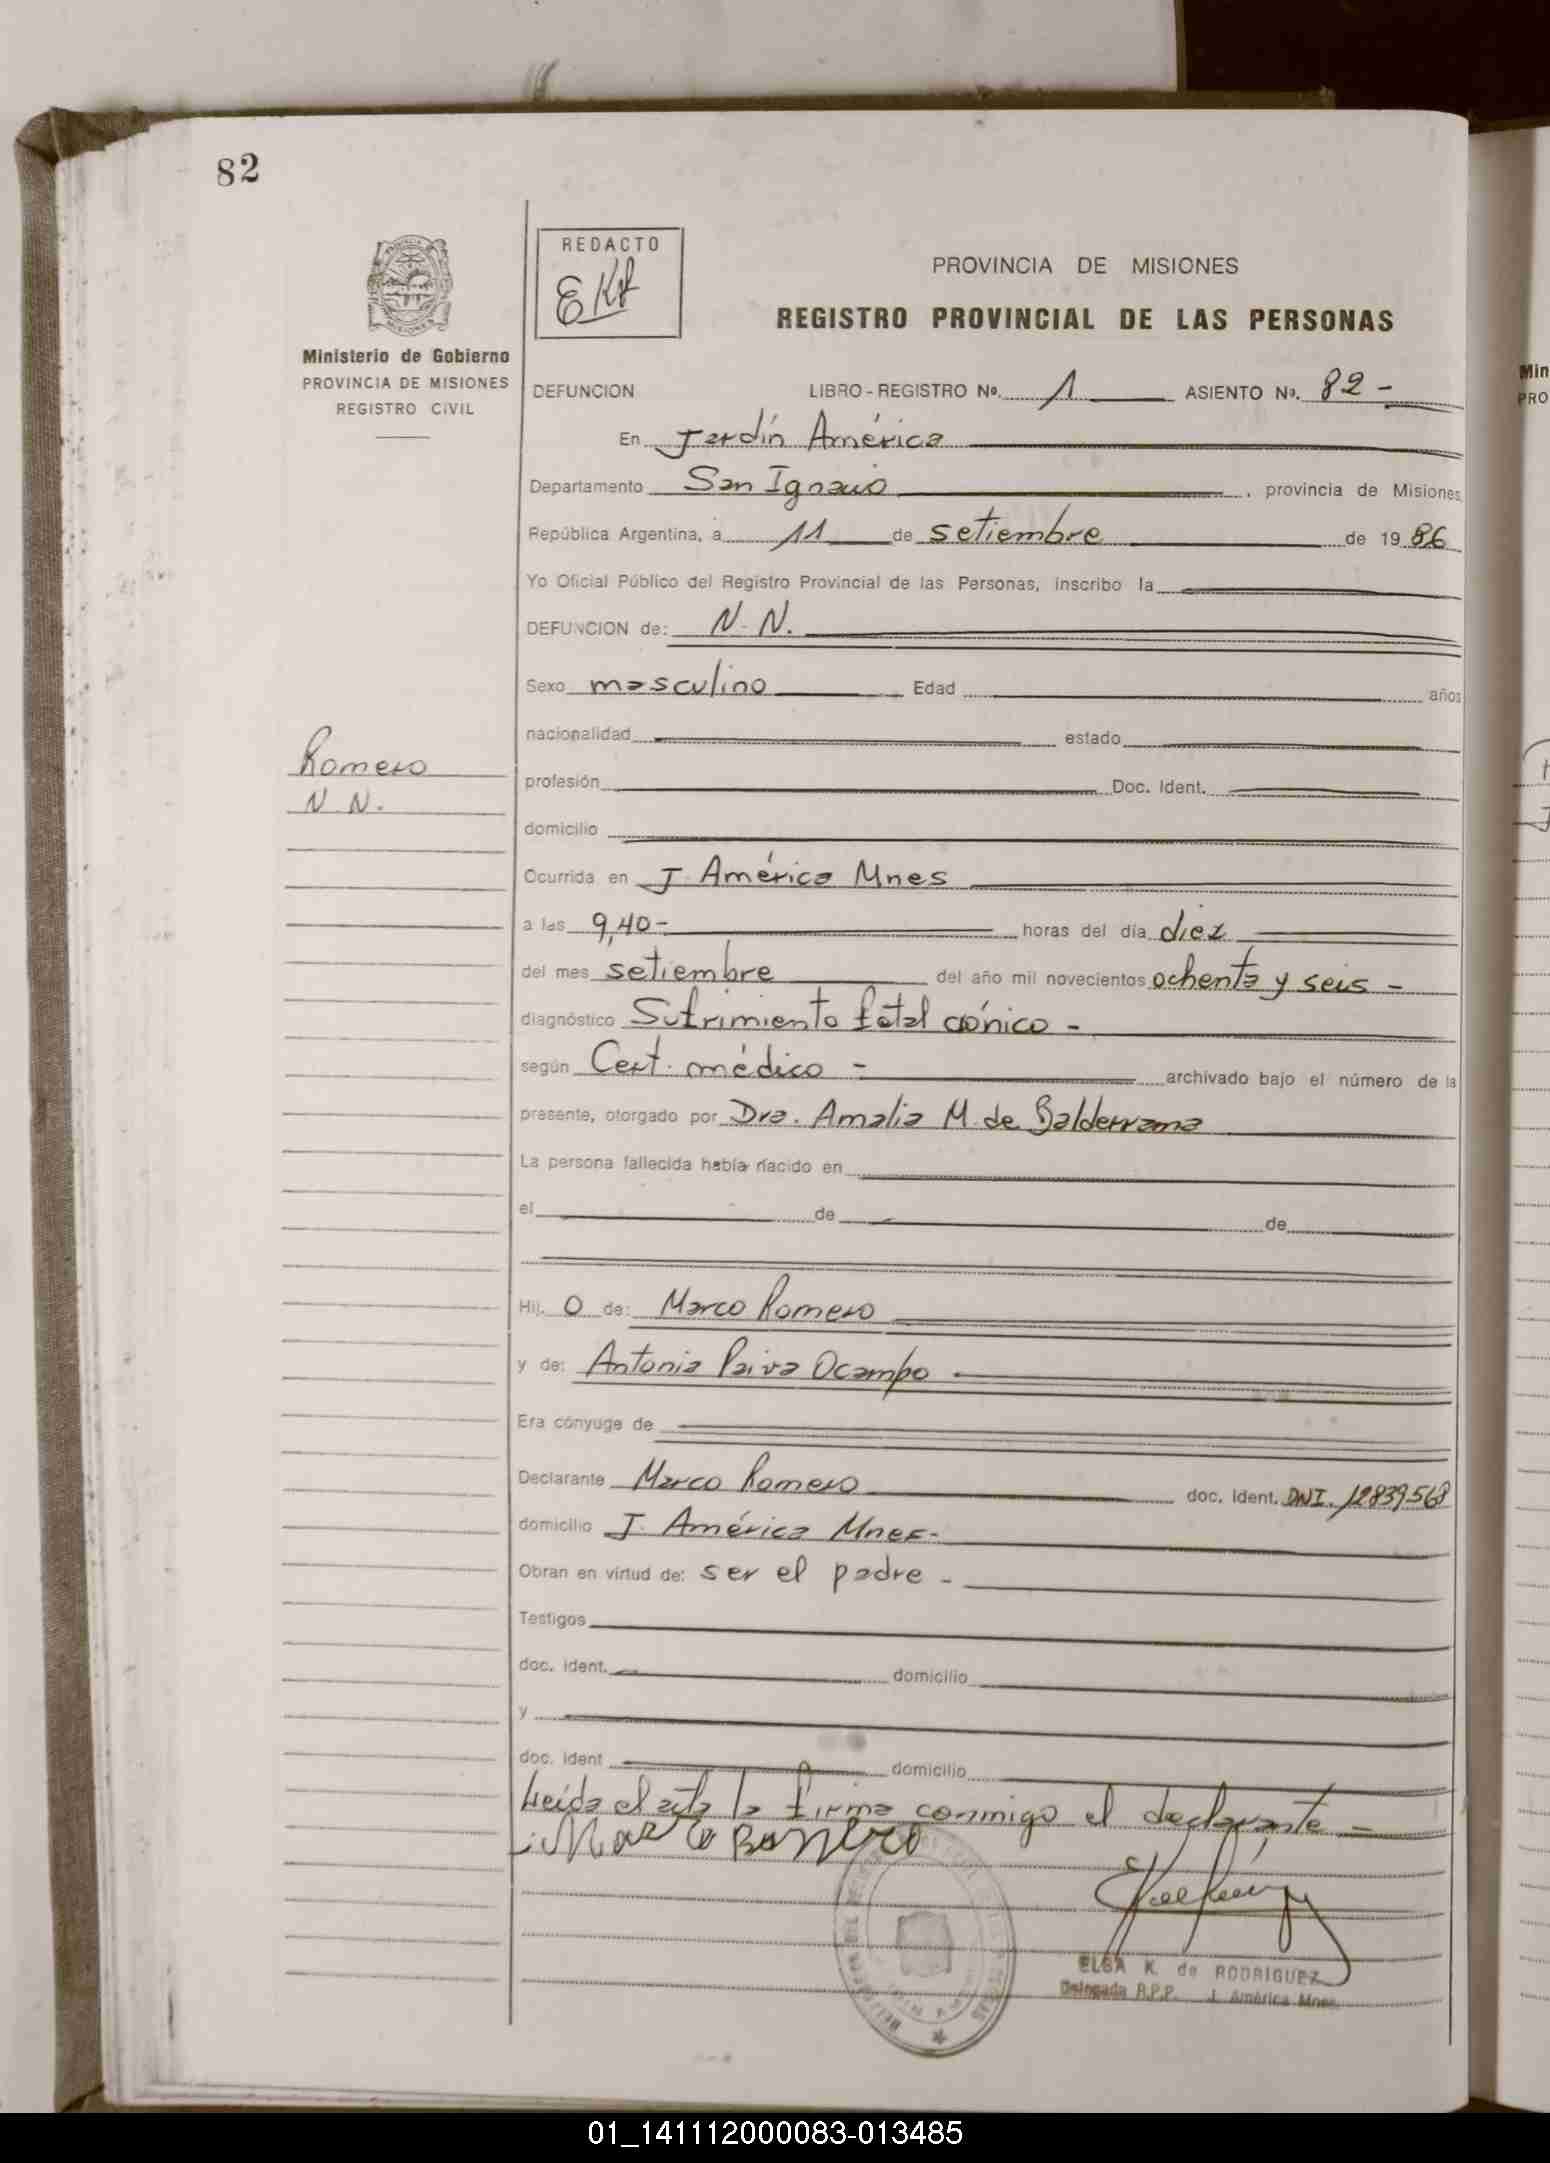 82
REDACTO
EKR
PROVINCIA DE MISIONES
REGISTRO PROVINCIAL DE LAS PERSONAS
Ministerio de Gobierno
PROVINCIA DE MISIONES
REGISTRO CIVIL
DEFUNCION LIBRO - REGISTRO Nº. 1 ASIENTO Nº. 82 -
En Jardín América
Departamento San Ignacio, provincia de Misiones
República Argentina, a 11 de setiembre de 1986
Yo Oficial Público del Registro Provincial de las Personas, inscribo la
DEFUNCION de: N. N.
Sexo masculino Edad años
nacionalidad estado
Romero
N. N.
profesión Doc. Ident.
domicilio
Ocurrida en J. América Mnes
a las 9,40- horas del día diez
del mes setiembre del año mil novecientos ochenta y seis -
diagnóstico Sufrimiento fetal crónico -
según Cert. médico - archivado bajo el número de la
presente, otorgado por Dra. Amalia M. de Balderrama
La persona fallecida había nacido en
el de de
Hij. O de: Marco Romero
y de: Antonia Paiva Ocampo
Era cónyuge de
Declarante Marco Romero doc. Ident. DNI. 12839568
domicilio J. América Mnes-
Obran en virtud de: ser el padre -
Testigos
doc. ident. domicilio
y
doc. ident domicilio
Leída el acta la firma conmigo el declarante -
Marco Romero
ELSA K. de RODRIGUEZ
Delegada R.P.P. J. América Mnes.
Min
PRO
01_141112000083-013485